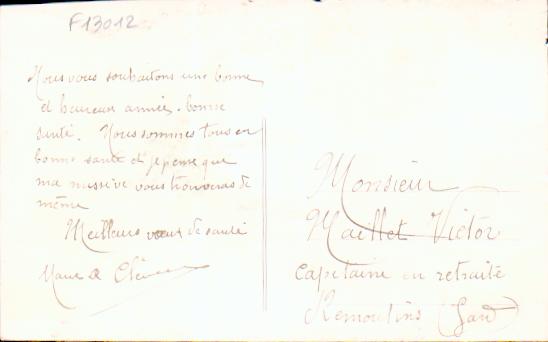 F13012
Nous vous souhaitons une bonne
et heureux année. bonne
santé. Nous sommes tous en
bonne santé et je pense que
ma missive vous trouveras de
même
Meilleurs vœux de santé
Monsieur
Maillet Victor
Capitaine en retraite
Remoulins (Gard)